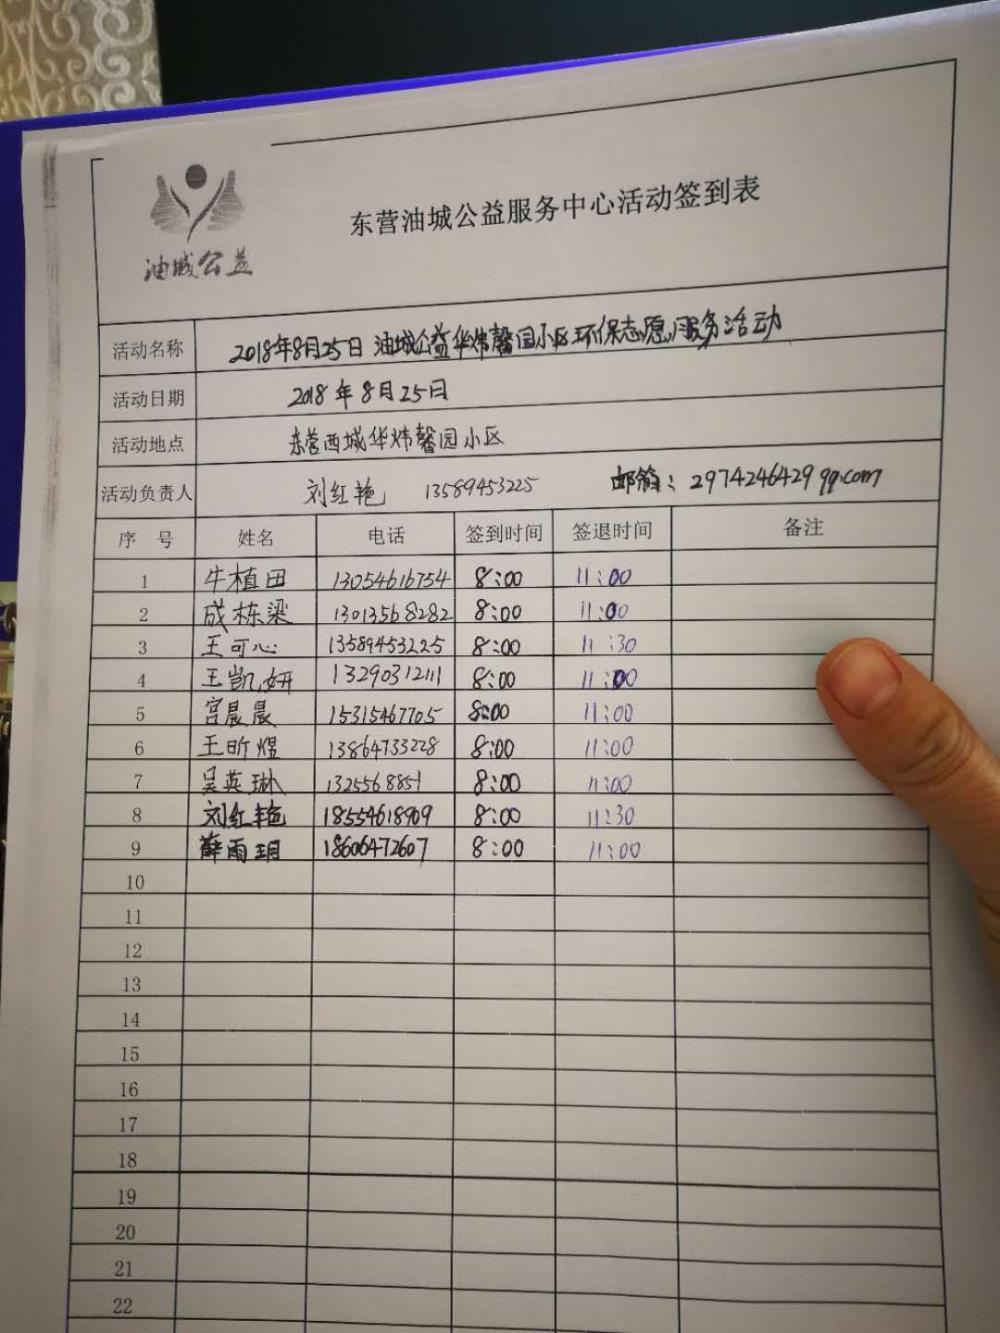 油城公益
东营油城公益服务中心活动签到表
活动名称 2018年8月25日 油城公益华炜馨园小区环保志愿服务活动
活动日期 2018年8月25日
活动地点 东营西城华炜馨园小区
活动负责人 刘红艳 13589453225 邮箱：2974246429qq.com
序号 姓名 电话 签到时间 签退时间 备注
1 牛植田 13054616754 8:00 11:00
2 成栋梁 13013568282 8:00 11:00
3 王可心 13589453225 8:00 11:30
4 王凯妍 13290312111 8:00 11:00
5 宫晨晨 15315467705 8:00 11:00
6 王昕煜 13864733228 8:00 11:00
7 吴英琳 1325568851 8:00 11:00
8 刘红艳 18554618909 8:00 11:30
9 薛雨玥 18606472607 8:00 11:00
10
11
12
13
14
15
16
17
18
19
20
21
22